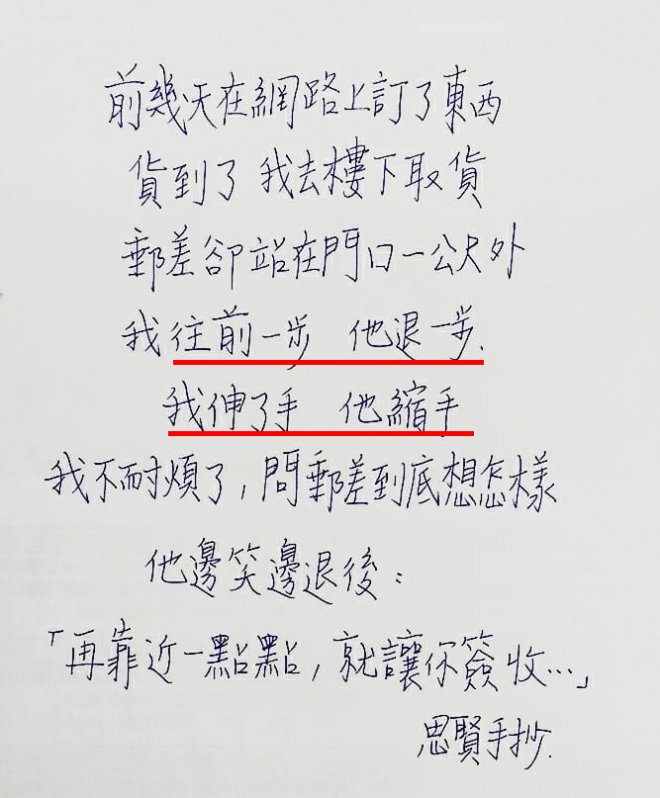 前幾天在網路上訂了東西
貨到了 我去樓下取貨
郵差卻站在門口一公尺外
我往前一步 他退一步.
我伸了手 他縮手
我不耐煩了,問郵差到底想怎樣
他邊笑邊退後:
「再靠近一點點,就讓你簽收…」
思賢手抄.